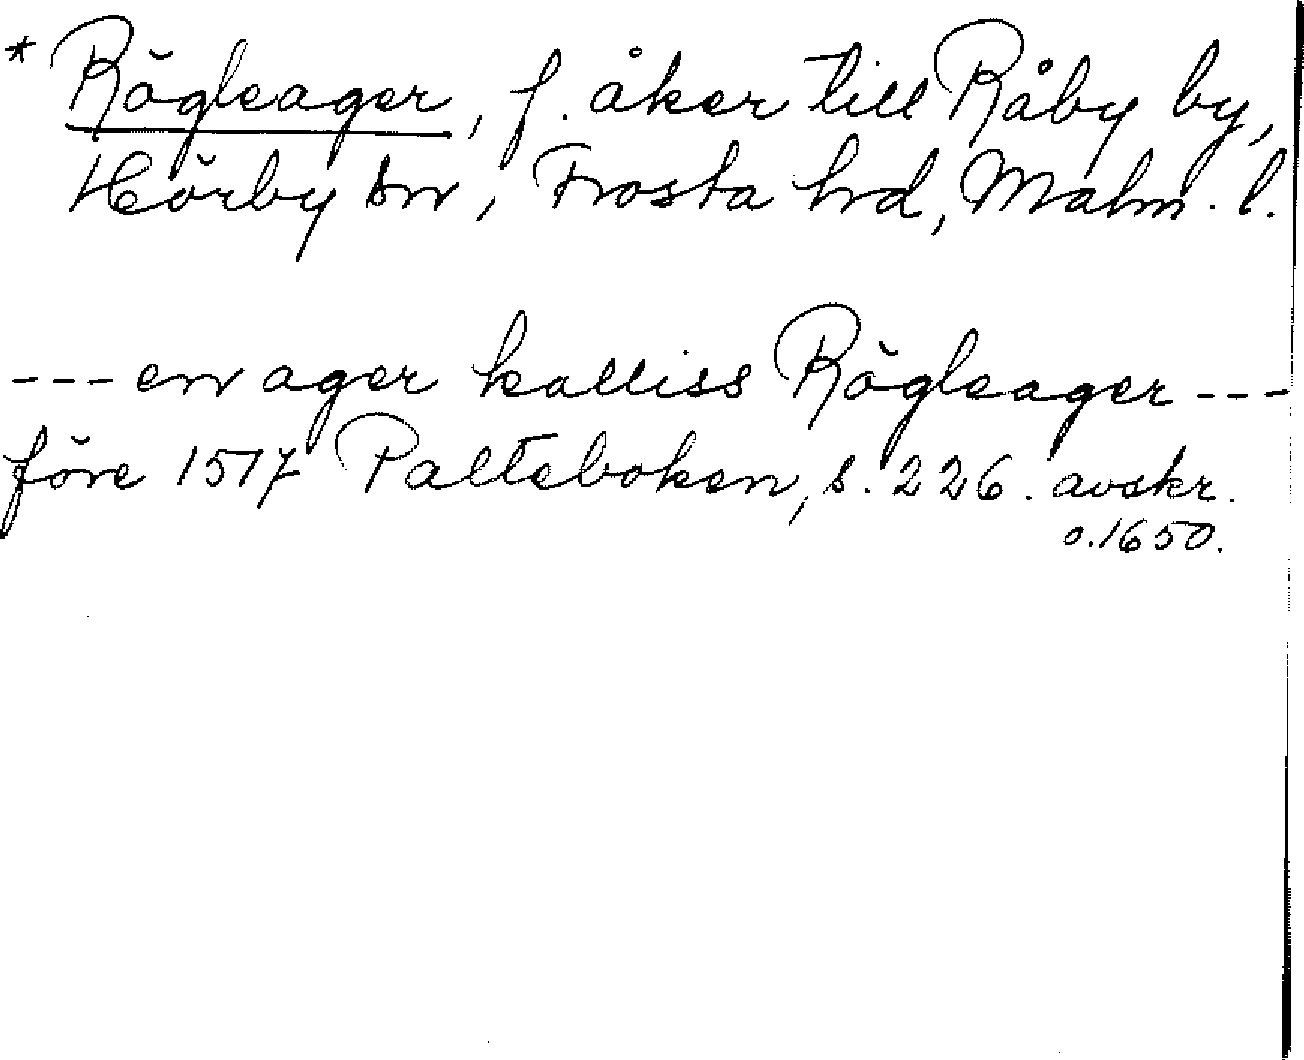 * Rögleager, f. åker till Råby by,
Hörby sn, Frosta hd, Malm. l.
--- en ager kalliss Rögleager ---
före 1517 Palteboken, s. 226. avskr.
o. 1650.